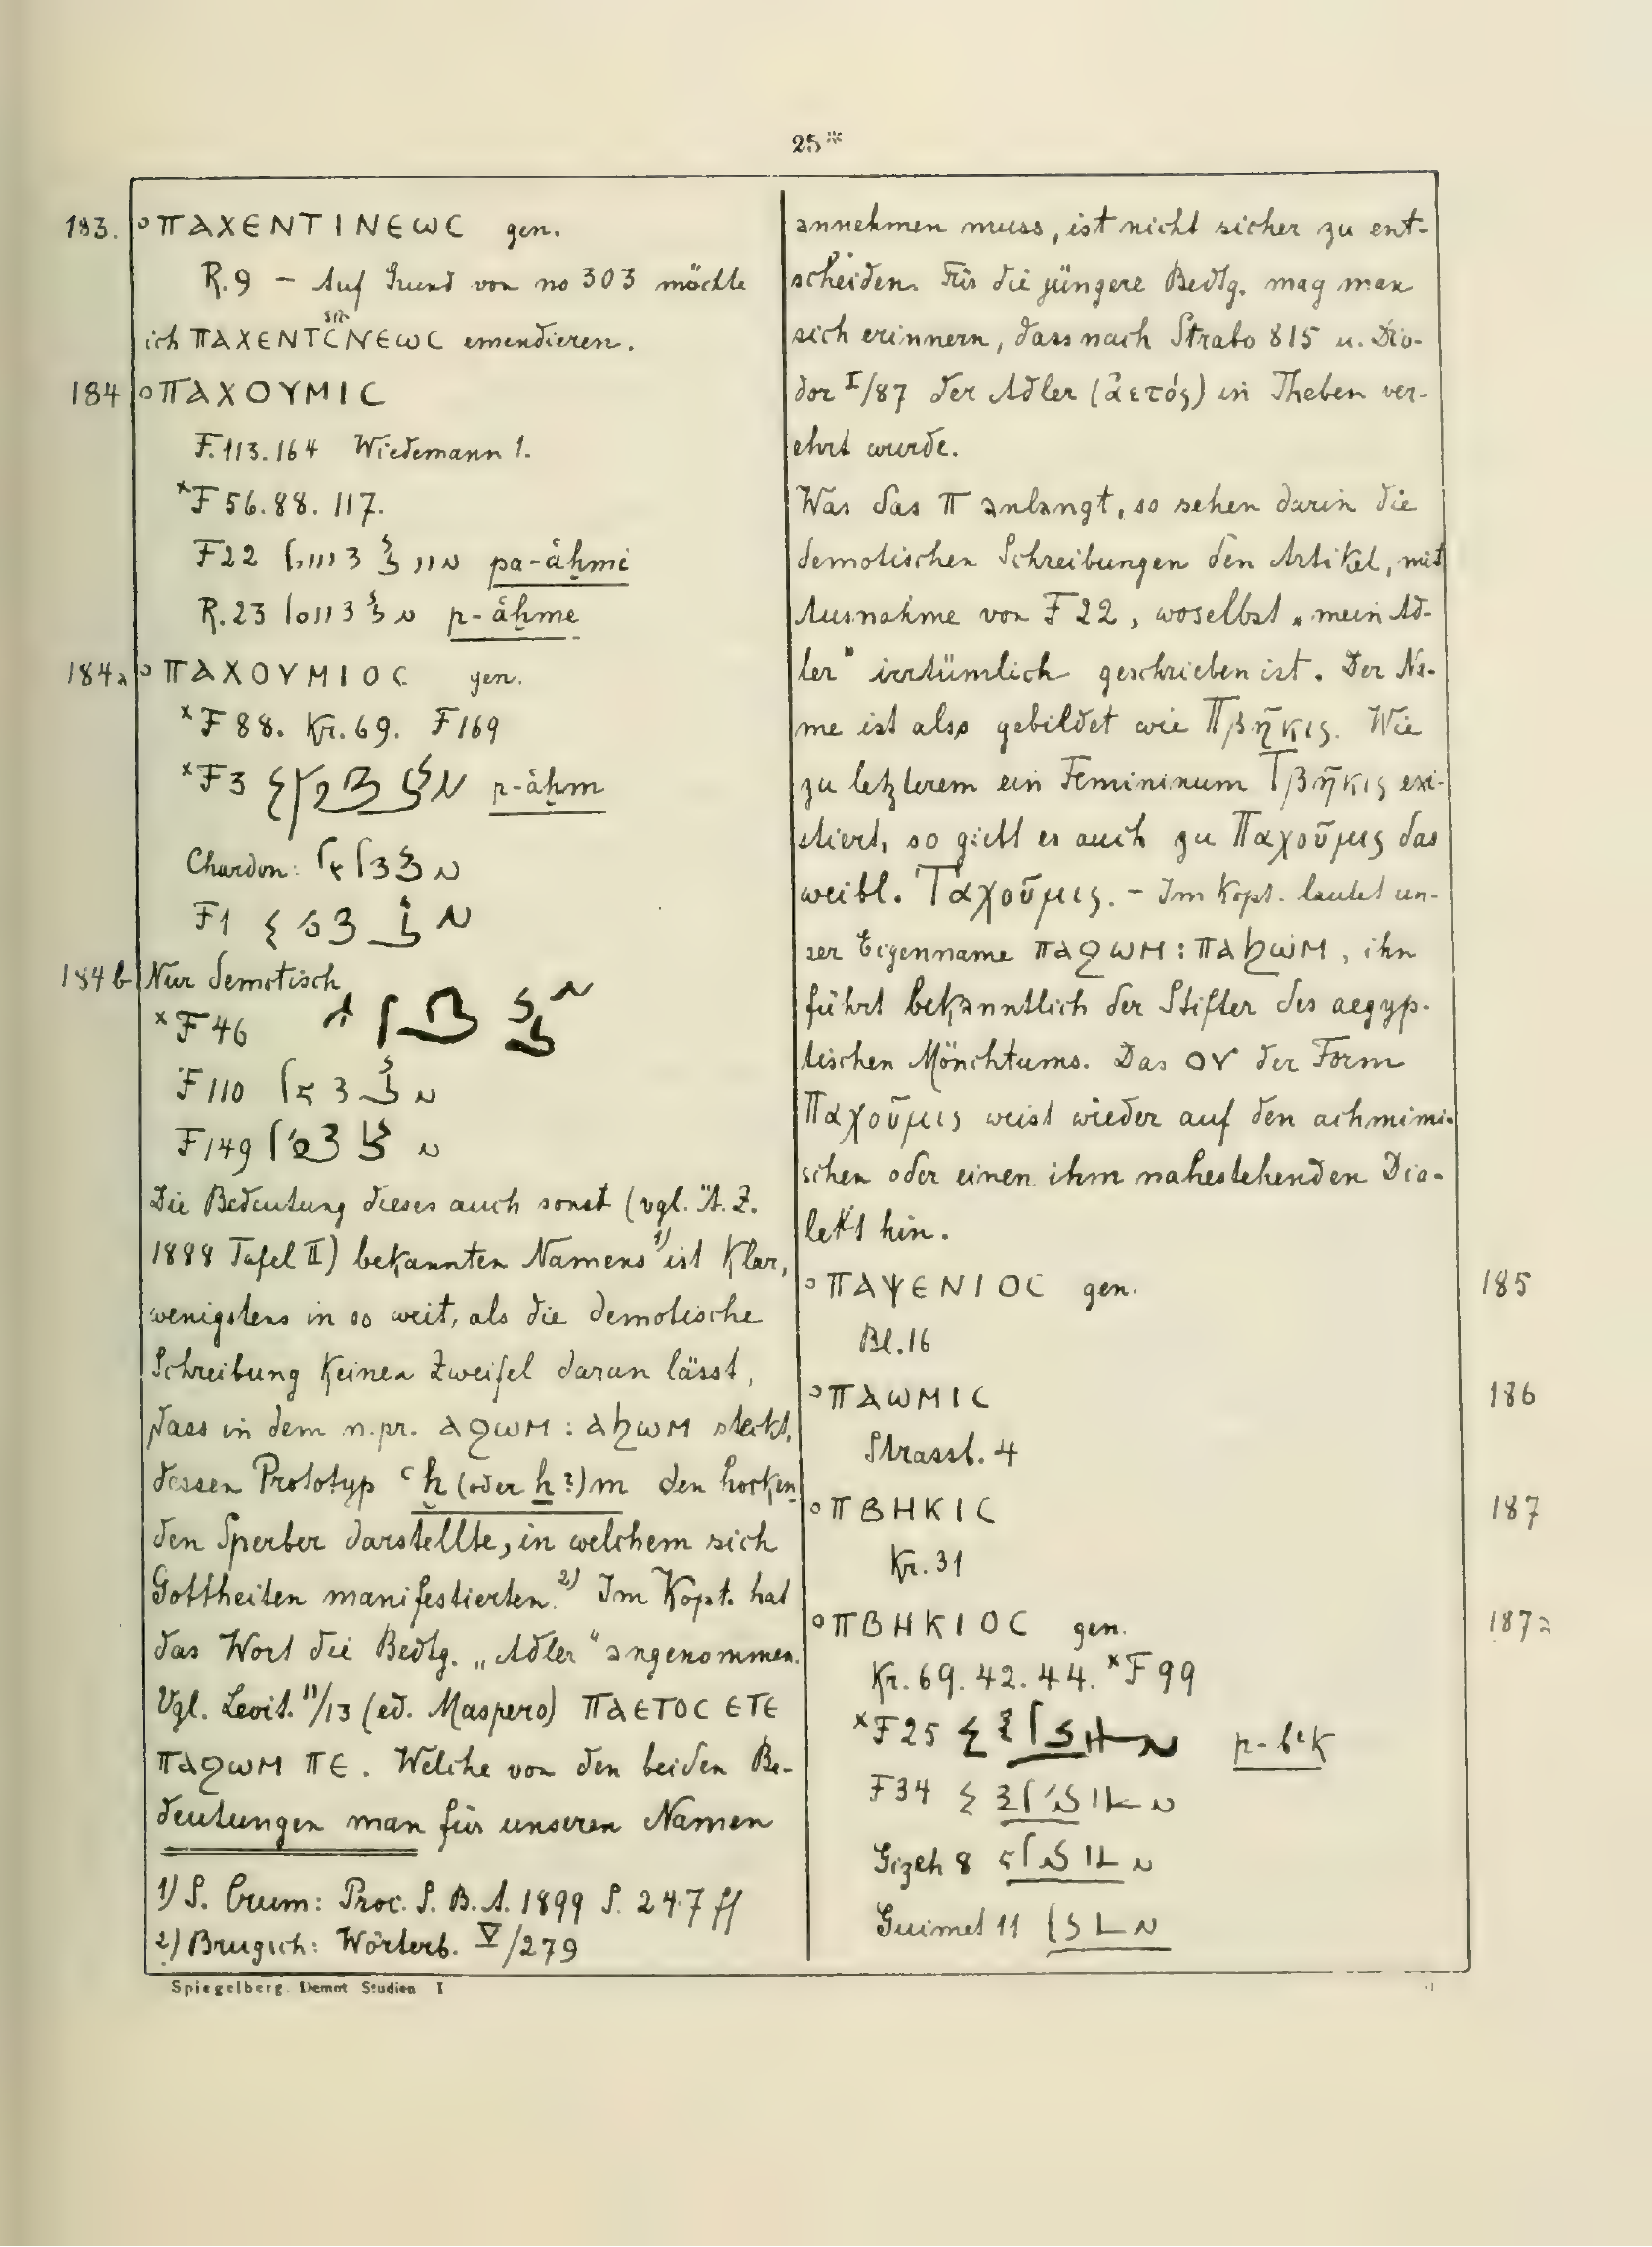 25*
183. °ΠΑΧΕΝΤΙΝΕωϹ gen.
R. 9 – Auf Grund von no 303 möchte
sic
ich ΠΑΧΕΝΤϹΝΕωϹ emendieren.
184 °ΠΑΧΟΥΜΙϹ
F. 113. 164 Wiedemann 1.
*F 56. 88. 117.
F 22 pa-ȧḫmi
R. 23 p-ȧḫme
184a °ΠΑΧΟΥΜΙΟϹ gen.
*F 88. Kr. 69. F 169
*F 3 p-ȧḫm
Chardon:
F 1
184b Nur demotisch
*F 46
F 110
F 149
Die Bedeutung dieses auch sonst (vgl. Ä. Z.
1888 Tafel II) bekannten Namens 1) ist klar,
wenigstens in so weit, als die demotische
Schreibung keinen Zweifel daran lässt,
dass in dem n. pr. ⲁϩⲱⲙ : ⲁϧⲱⲙ steckt,
dessen Prototyp ʿḫ (oder ẖ?)m den hocken
den Sperber darstellte, in welchem sich
Gottheiten manifestierten. 2) Im Kopt. hat
das Wort die Bedtg. „Adler“ angenommen.
Vgl. Levit. 11/13 (ed. Maspero) ⲡⲁⲉⲧⲟⲥ ⲉⲧⲉ
ⲡⲁϩⲱⲙ ⲡⲉ. Welche von den beiden Be-
deutungen man für unseren Namen
1) S. Crum: Proc. S. B. A. 1899 S. 247 ff
2) Brugsch: Wörterb. V/279
annehmen muss, ist nicht sicher zu ent-
scheiden. Für die jüngere Bedtg. mag man
sich erinnern, dass nach Strabo 815 u. Dio-
dor I/87 der Adler (ἀετός) in Theben ver-
ehrt wurde.
Was das Π anlangt, so sehen darin die
demotischen Schreibungen den Artikel, mit
Ausnahme von F 22, woselbst „mein Ad-
ler“ irrtümlich geschrieben ist. Der Na-
me ist also gebildet wie Πβῆκις. Wie
zu letzterem ein Femininum Τβῆκις exi-
stiert, so giebt es auch zu Παχοῦμις das
weibl. Ταχοῦμις. – Im Kopt. lautet un-
ser Eigenname ⲡⲁϩⲱⲙ : ⲡⲁϧⲱⲙ, ihn
führt bekanntlich der Stifter des aegyp-
tischen Mönchtums. Das ΟΥ der Form
Παχοῦμις weist wieder auf den achmimi-
schen oder einen ihm nahestehenden Dia-
lekt hin.
°ΠΑΨΕΝΙΟϹ gen. 185
Bl. 16
°ΠΑωΜΙϹ 186
Strassb. 4
°ΠΒΗΚΙϹ 187
Kr. 31
°ΠΒΗΚΙΟϹ gen. 187a
Kr. 69. 42. 44. *F 99
*F 25 p-bek
F 34
Gizeh 8
Guimet 11
Spiegelberg. Demot Studien I